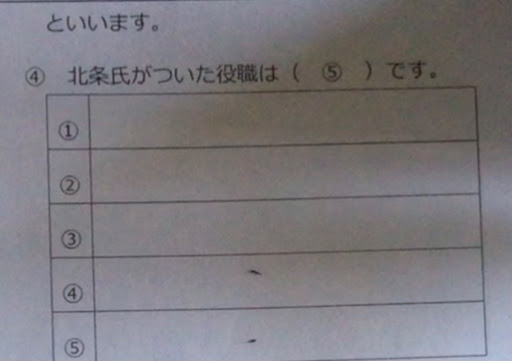 といいます。
④ 北条氏がついた役職は（ ⑤ ）です。
①
②
③
④
⑤